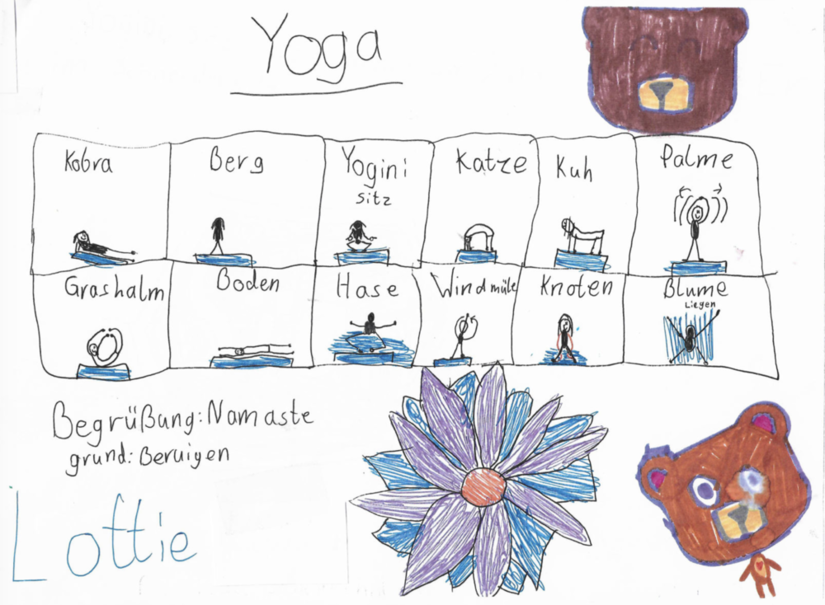 Yoga
Kobra
Berg
Yogini
sitz
Katze
Kuh
Palme
Grashalm
Boden
Hase
Windmüle
Knoten
Blume
Liegen
Begrüßung: Namaste
grund: Beruigen
Lottie